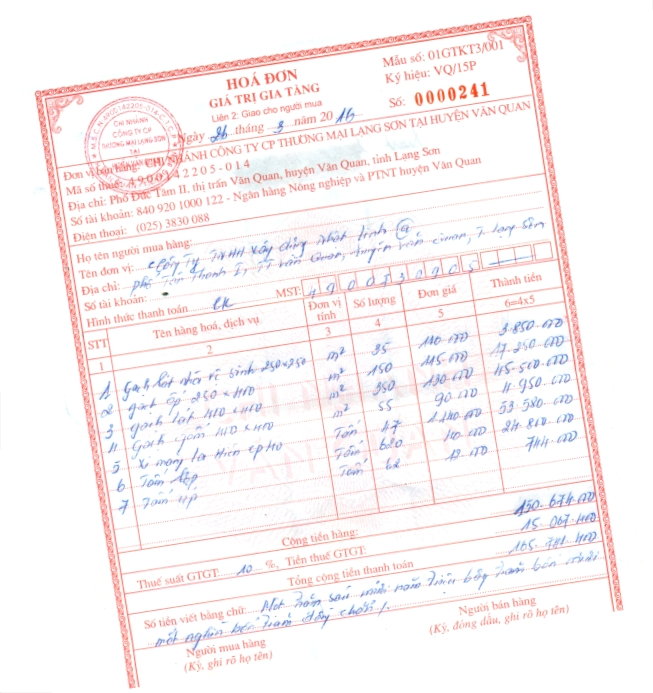 HOÁ ĐƠN
GIÁ TRỊ GIA TĂNG
Liên 2: Giao cho người mua
Ngày 26 tháng 3 năm 2016
Mẫu số: 01GTKT3/001
Ký hiệu: VQ/15P
Số: 0000241
CHI NHÁNH
CÔNG TY CP
THƯƠNG MẠI LẠNG SƠN
TẠI
Đơn vị bán hàng: CHI NHÁNH CÔNG TY CP THƯƠNG MẠI LẠNG SƠN TẠI HUYỆN VĂN QUAN
Mã số thuế: 4900142205-014
Địa chỉ: Phố Đức Tâm II, thị trấn Văn Quan, huyện Văn Quan, tỉnh Lạng Sơn
Số tài khoản: 840 920 1000 122 - Ngân hàng Nông nghiệp và PTNT huyện Văn Quan
Điện thoại: (025) 3830 088
Họ tên người mua hàng:
Tên đơn vị: Công ty TNHH xây dựng
Địa chỉ: phố Tân Thanh I, TT Văn Quan, huyện Văn Quan, T. Lạng Sơn
Số tài khoản:
Hình thức thanh toán: CK MST:
STT Tên hàng hoá, dịch vụ Đơn vị tính Số lượng Đơn giá Thành tiền
1 2 3 4 5 6=4x5
1 Gạch lát nhà vệ sinh 250x250 m² 35 110.000 3.850.000
2 gạch ốp 250 x 400 m² 150 115.000 17.250.000
3 gạch lát 400 x 400 m² 350 130.000 45.500.000
4 Gạch 400 x 400 m² 55 90.000 4.950.000
5 Xi măng La Hiên Tấn 47 1.140.000 53.580.000
6 Tấm Tấm 620 40.000 24.800.000
7 Tấm úp Tấm 62 12.000 744.000
Cộng tiền hàng: 150.674.000
Thuế suất GTGT: 10 %, Tiền thuế GTGT: 15.067.400
Tổng cộng tiền thanh toán 165.741.400
Số tiền viết bằng chữ: Một trăm sáu mươi năm triệu bảy trăm bốn mươi
một nghìn bốn trăm đồng chẵn /.
Người mua hàng
(Ký, ghi rõ họ tên)
Người bán hàng
(Ký, đóng dấu, ghi rõ họ tên)